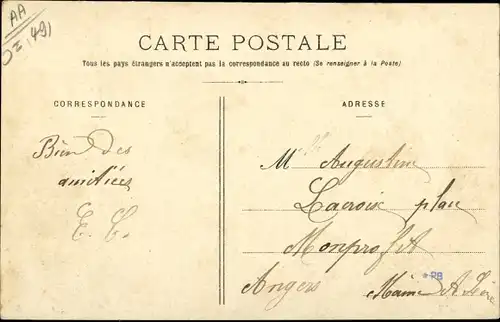 AA
CARTE POSTALE
Tous les pays étrangers n'acceptent pas la correspondance au recto (Se renseigner à la Poste)
CORRESPONDANCE
ADRESSE
Bien des
amitiées
E. C.
Mlle Augustine
Lacroix place
Monprofit
Angers
Maine & Loire
RB